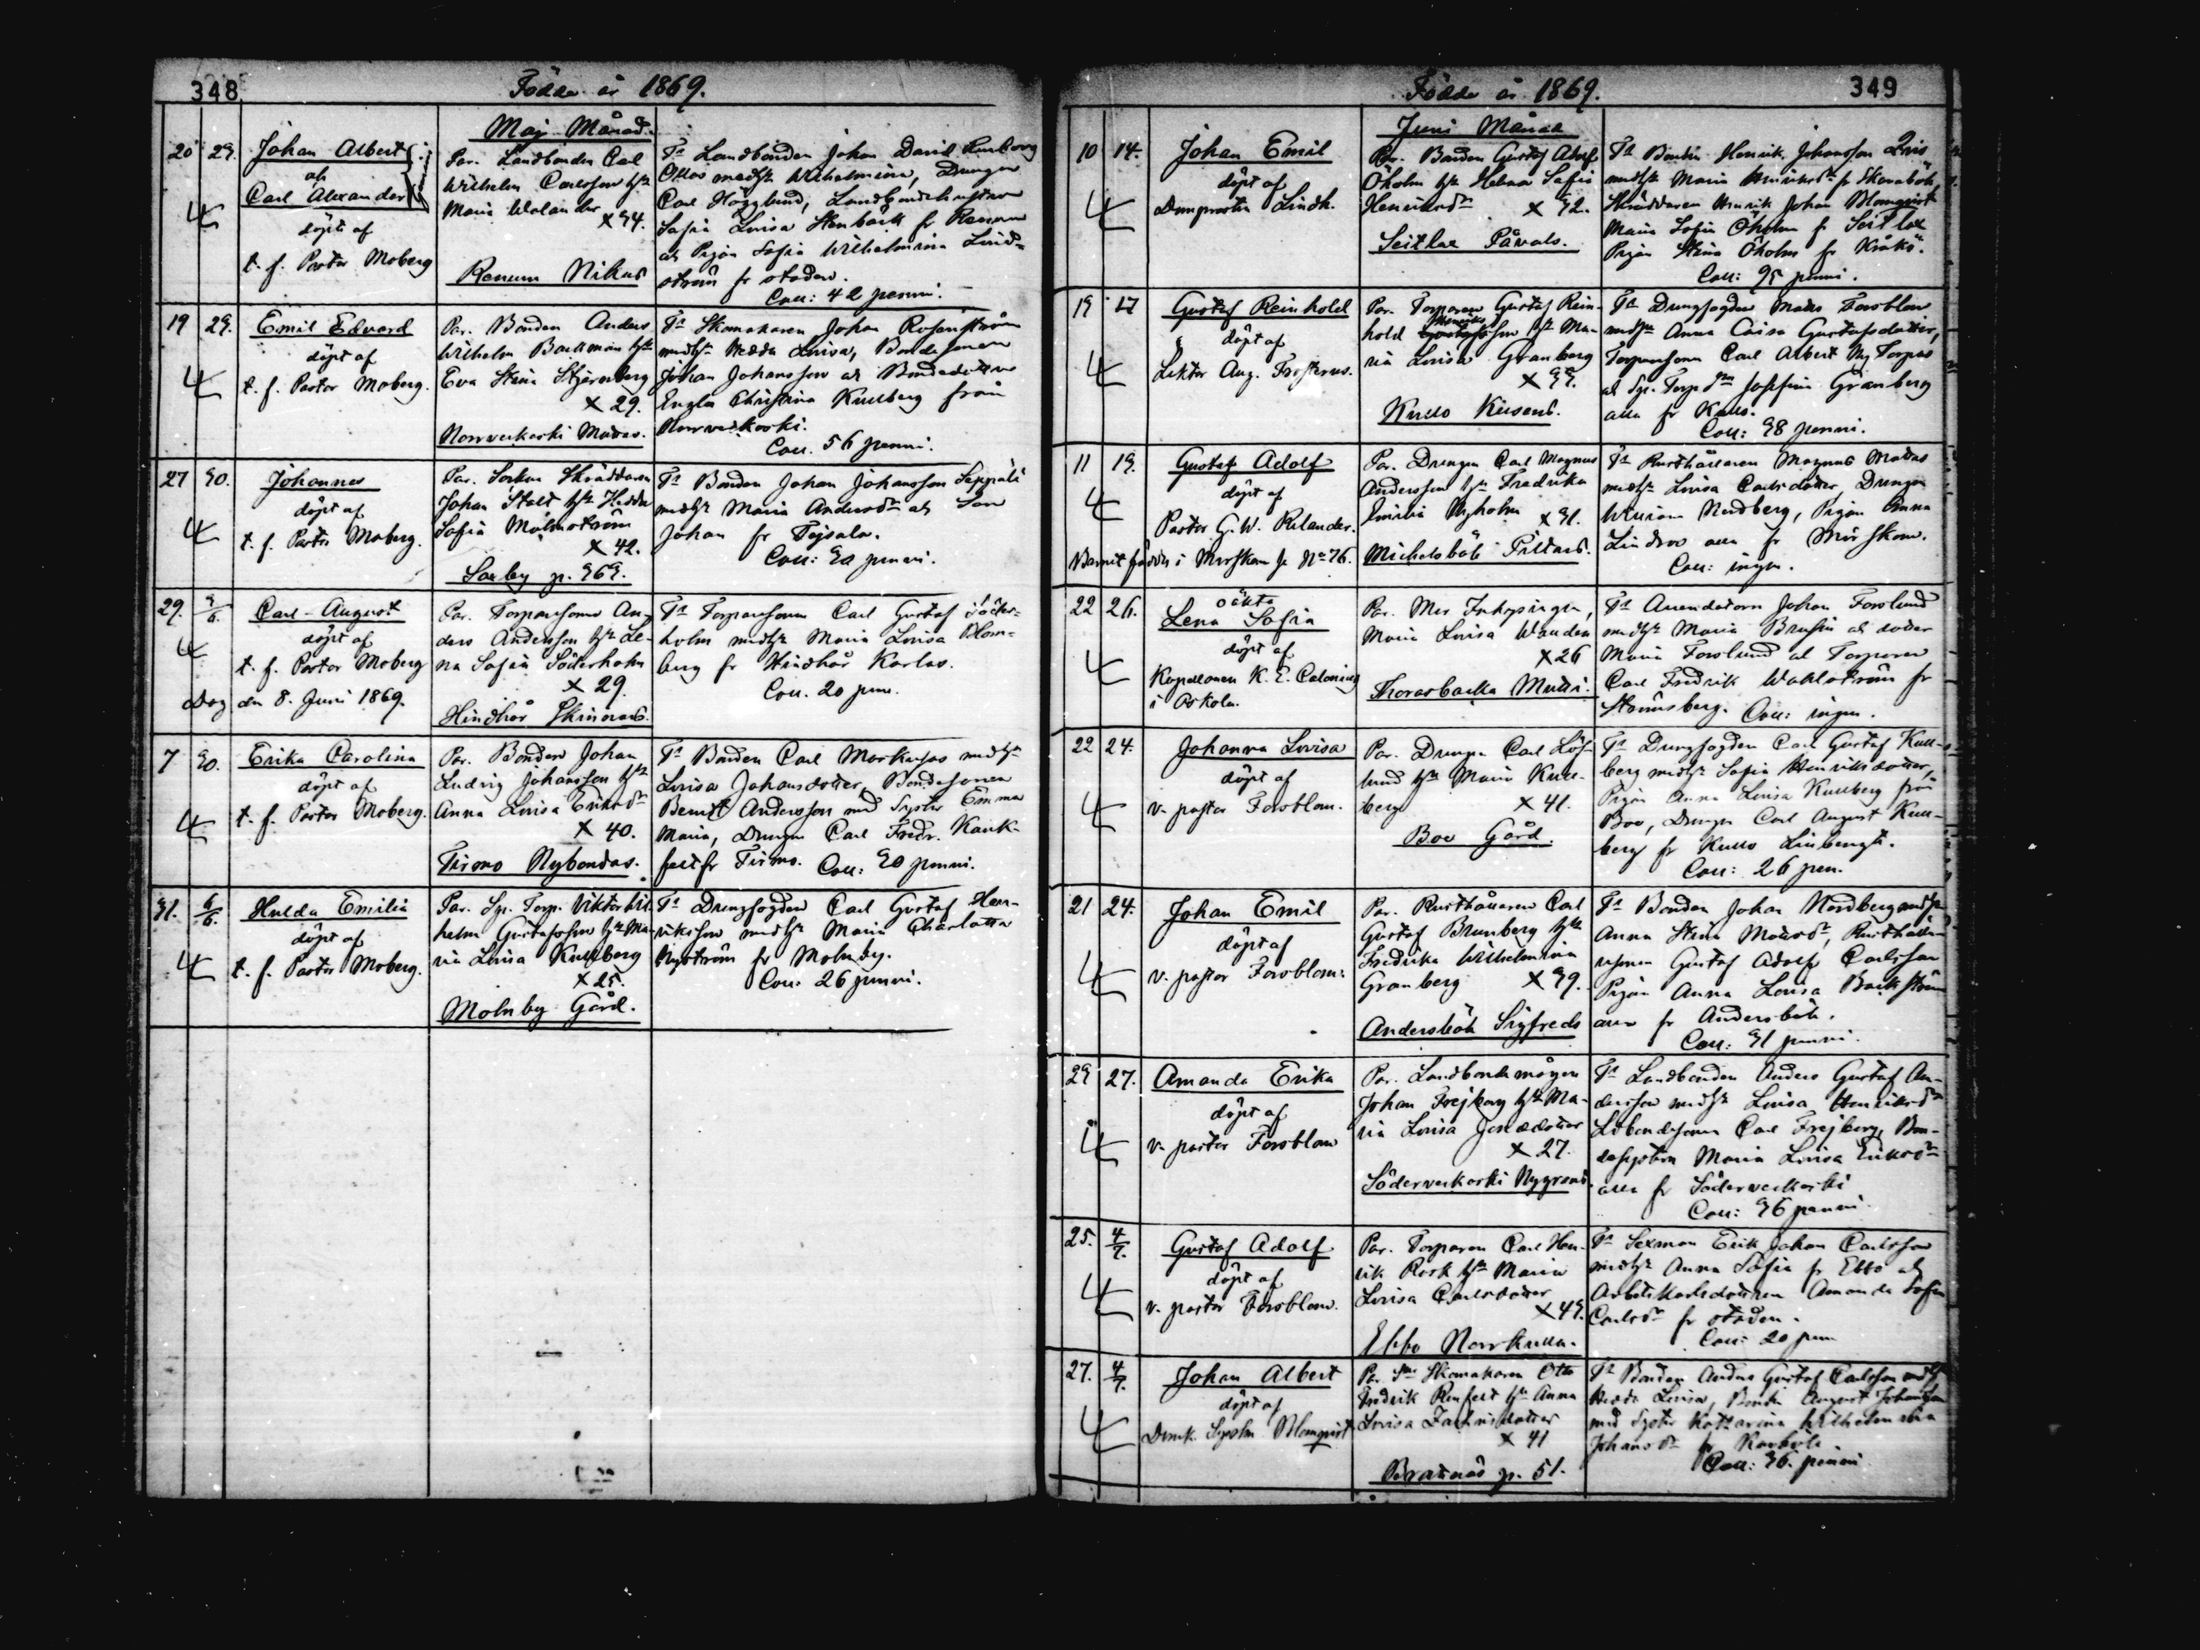 348
Födda år 1869.
Maj Månad.
20 29. Johan Albert
och
Carl Alexander
döpt af
t. f. Pastor Moberg
Par. Landbonden Carl
Wilhelm Carlsson hst
Maria Welander
X 34.
Renum Nikus
Ts Landbonden Johan David
Ottos medhst Wilhelmina, Drengen
Carl Högglund, Landbondehustrun
Sofia Lovisa Stenbäck fr
ch Pigan Sofia Wilhelmina Lind-
ström fr staden.
Coll: 42 penni.
19 29. Emil Edvard
döpt af
t. f. Pastor Moberg.
Par. Bonden Anders
Wilhelm Backman hst
Eva Stina Stjernberg
X 29.
Norrveckoski Mattas.
Ts Skomakaren Johan Rosenström
medhst Hedda Lovisa, Bondesonen
Johan Johansson ch Bondedottren
Engla Christina Kullberg från
Norrveckoski.
Coll. 56 penni.
27 30. Johannes
döpt af
t. f. Pastor Moberg.
Par. Socken Skräddaren
Johan Stolt hst Hedda
Sofia Malmström
X 42.
Saxby p. 369.
Ts Bonden Johan Johansson Seppälä
medhst Maria Andersdr ch Son
Johan fr Tejsala.
Coll: 30 penni.
29. 3/6. Carl August
döpt af
t. f. Pastor Moberg
Dog den 8. Juni 1869.
Par. Torparsonen An-
ders Andersson hst Le-
na Sofia Söderholm
X 29.
Hindhår Skinnars.
Ts Torparsonen Carl Gustaf Söder-
holm medhst Maria Lovisa Blom-
berg fr Hindhår Karlas.
Coll. 20 pen.
7 30. Erika Carolina
döpt af
t. f. Pastor Moberg.
Par. Bonden Johan
Ludvig Johansson hst
Anna Lovisa Eriksdr
X 40.
Tirmo Nybondas.
Ts Bonden Carl Markusas medhst
Lovisa Johansdotter, Bondesonen
Berndt Andersson med Syster Emma
Maria, Drengen Carl Fredr. Kank-
felt fr Tirmo. Coll: 30 penni.
31. 6/6. Hulda Emilia
döpt af
t. f. Pastor Moberg.
Par. Sp. Torp. Viktor Wil-
helm Gustafsson hst Ma-
ria Lovisa Kullberg
X 25.
Molnby Gård.
Ts Drengfogden Carl Gustaf Hen-
riksson medhst Maria Charlotta
Nyström fr Molnby.
Coll: 26 penni.
349
Födda år 1869.
Juni Månad
10 14. Johan Emil
döpt af
Domprosten Lindh.
Par. Bonden Gustaf Adolf
Öholm hst Helena Sofia
Henriksdr X 32.
Seitlax Påvals.
Ts Bonden Henrik Johansson
medhst Maria Henriksdr fr Skavabök
Skräddaren Henrik Johan Blomqvist
Maria Sofia Öholm fr Seitlax
Pigan Stina Öholm fr Kråkö.
Coll: 95 penni.
19 17 Gustaf Reinhold
döpt af
Lektor Aug. Frosterus.
Par. Torparen Gustaf Rein-
hold Henriksson hst Ma-
ria Lovisa Granberg
X 33.
Kullo Kusens.
Ts Drengfogden Mats Forsblom
medhst Anna Caisa Gustafsdotter,
Torparsonen Carl Albert Nytorpas
ch Sp. Torpdrn Josefina Granberg
alla fr Kullo.
Coll: 38 penni.
11 19. Gustaf Adolf
döpt af
Pastor G. W. Relander.
Barnet födde i Mörskom fr No 76.
Par. Drengen Carl Magnus
Andersson hst Fredrika
Emilia Nyholm X 31.
Michelsböle Pittars.
Ts Rusthållaren Magnus Mattas
medhst Lovisa Carlsdotter, Drengen
William Nordberg, Pigan Anna
Lindroo alla fr Mörskom.
Coll: ingen.
22 26. oäkta
Lena Sofia
döpt af
Kapellanen K. E. Calonius
i Askola.
Par. Mor Inhysingen,
Maria Lovisa Wanden
X 26
Thorasbacka Matti.
Ts Arrendatorn Johan Forslund
medhst Maria Brusin ch dotter
Maria Forslund ch Torparen
Carl Fredrik Wahlström fr
Stensberg. Coll: ingen.
22 24. Johanna Lovisa
döpt af
v. pastor Forsblom.
Par. Drengen Carl Löf-
lund hst Maria Kull-
berg X 41.
Boe Gård.
Ts Drengfogden Carl Gustaf Kull-
berg medhst Sofia Henriksdotter,
Pigan Anna Lovisa Kullberg från
Boe, Drengen Carl August Kull-
berg fr Kullo
Coll: 26 pen.
21 24. Johan Emil
döpt af
v. pastor Forsblom.
Par. Rusthållaren Carl
Gustaf Brunberg hst
Fredrika Wilhelmina
Granberg X 39.
Andersböle Sigfreds
Ts Bonden Johan Nordberg medhst
Anna Stina Matsdr, Rusthålla-
resonen Gustaf Adolf Carlsson
Pigan Anna Lovisa Backström
alla fr Andersböle.
Coll: 31 penni.
23 27. Amanda Erika
döpt af
v. pastor Forsblom
Par. Landbondemågen
Johan Frejberg hst Ma-
ria Lovisa
X 27.
Söderveckoski Nygrens.
Ts Landbonden Anders Gustaf An-
dersson medhst Lovisa Henriksdr
Lbondesonen Carl Frejberg, Bon-
desystern Maria Lovisa Eriksdr
alla fr Söderveckoski
Coll: 36 penni.
25. 4/7. Gustaf Adolf
döpt af
v. pastor Forsblom.
Par. Torparen Carl Hen-
rik Rosk hst Maria
Lovisa Carlsdotter
X 43.
Ebbo Norrkulla.
Ts Sexman Erik Johan Carlsson
medhst Anna Sofia fr Ebbo ch
Arbetskarlsdottren Amanda Sofia
Carlsdr fr staden.
Coll: 20 pen.
27. 4/7. Johan Albert
döpt af
Domk. Syssl. Blomqvist
Par. Skomakaren Otto
Fredrik Renfelt hst Anna
Lovisa Zachrisdotter
X 41
Brattnäs p. 51.
Ts Bonden Anders Gustaf Carlsson medhst
Hedda Lovisa, Bonden August Johansson
med Syster Katharina Wilhelmina
Johansdr fr
Coll: 36 penni